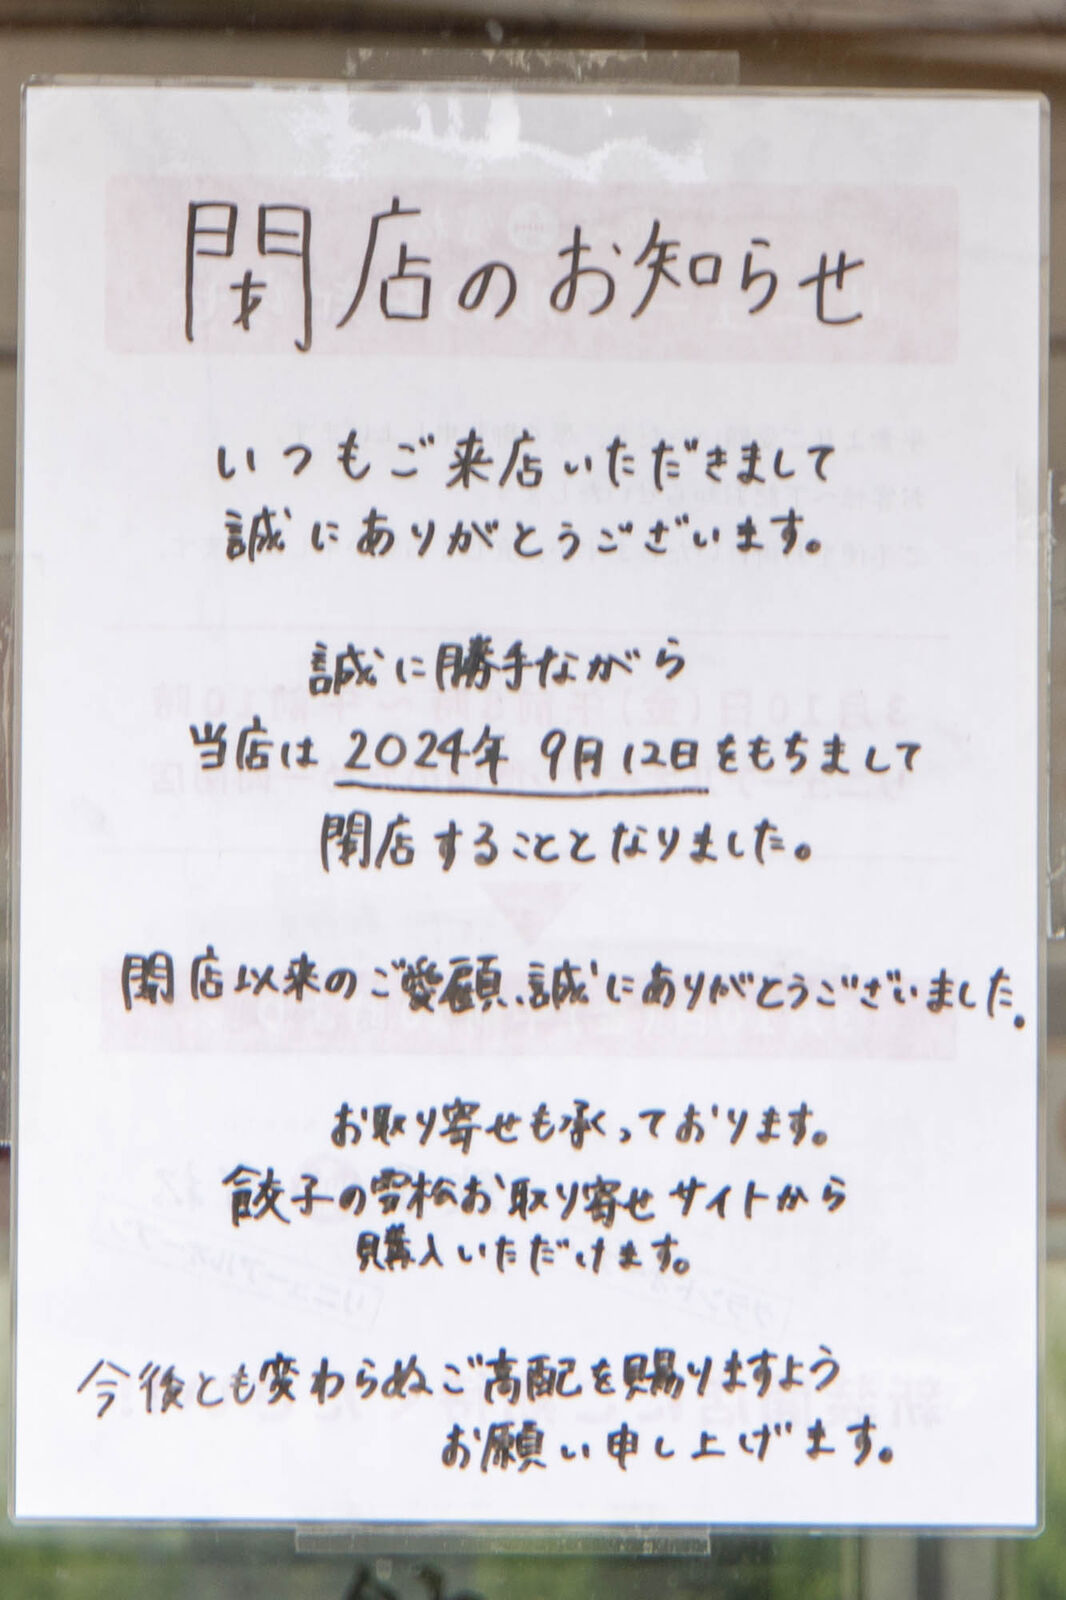 閉店のお知らせ
いつもご来店いただきまして
誠にありがとうございます。
誠に勝手ながら
当店は 2024年 9月12日をもちまして
閉店することとなりました。
開店以来のご愛顧、誠にありがとうございました。
お取り寄せも承っております。
餃子の雪松お取り寄せサイトから
購入いただけます。
今後とも変わらぬご高配を賜りますよう
お願い申し上げます。